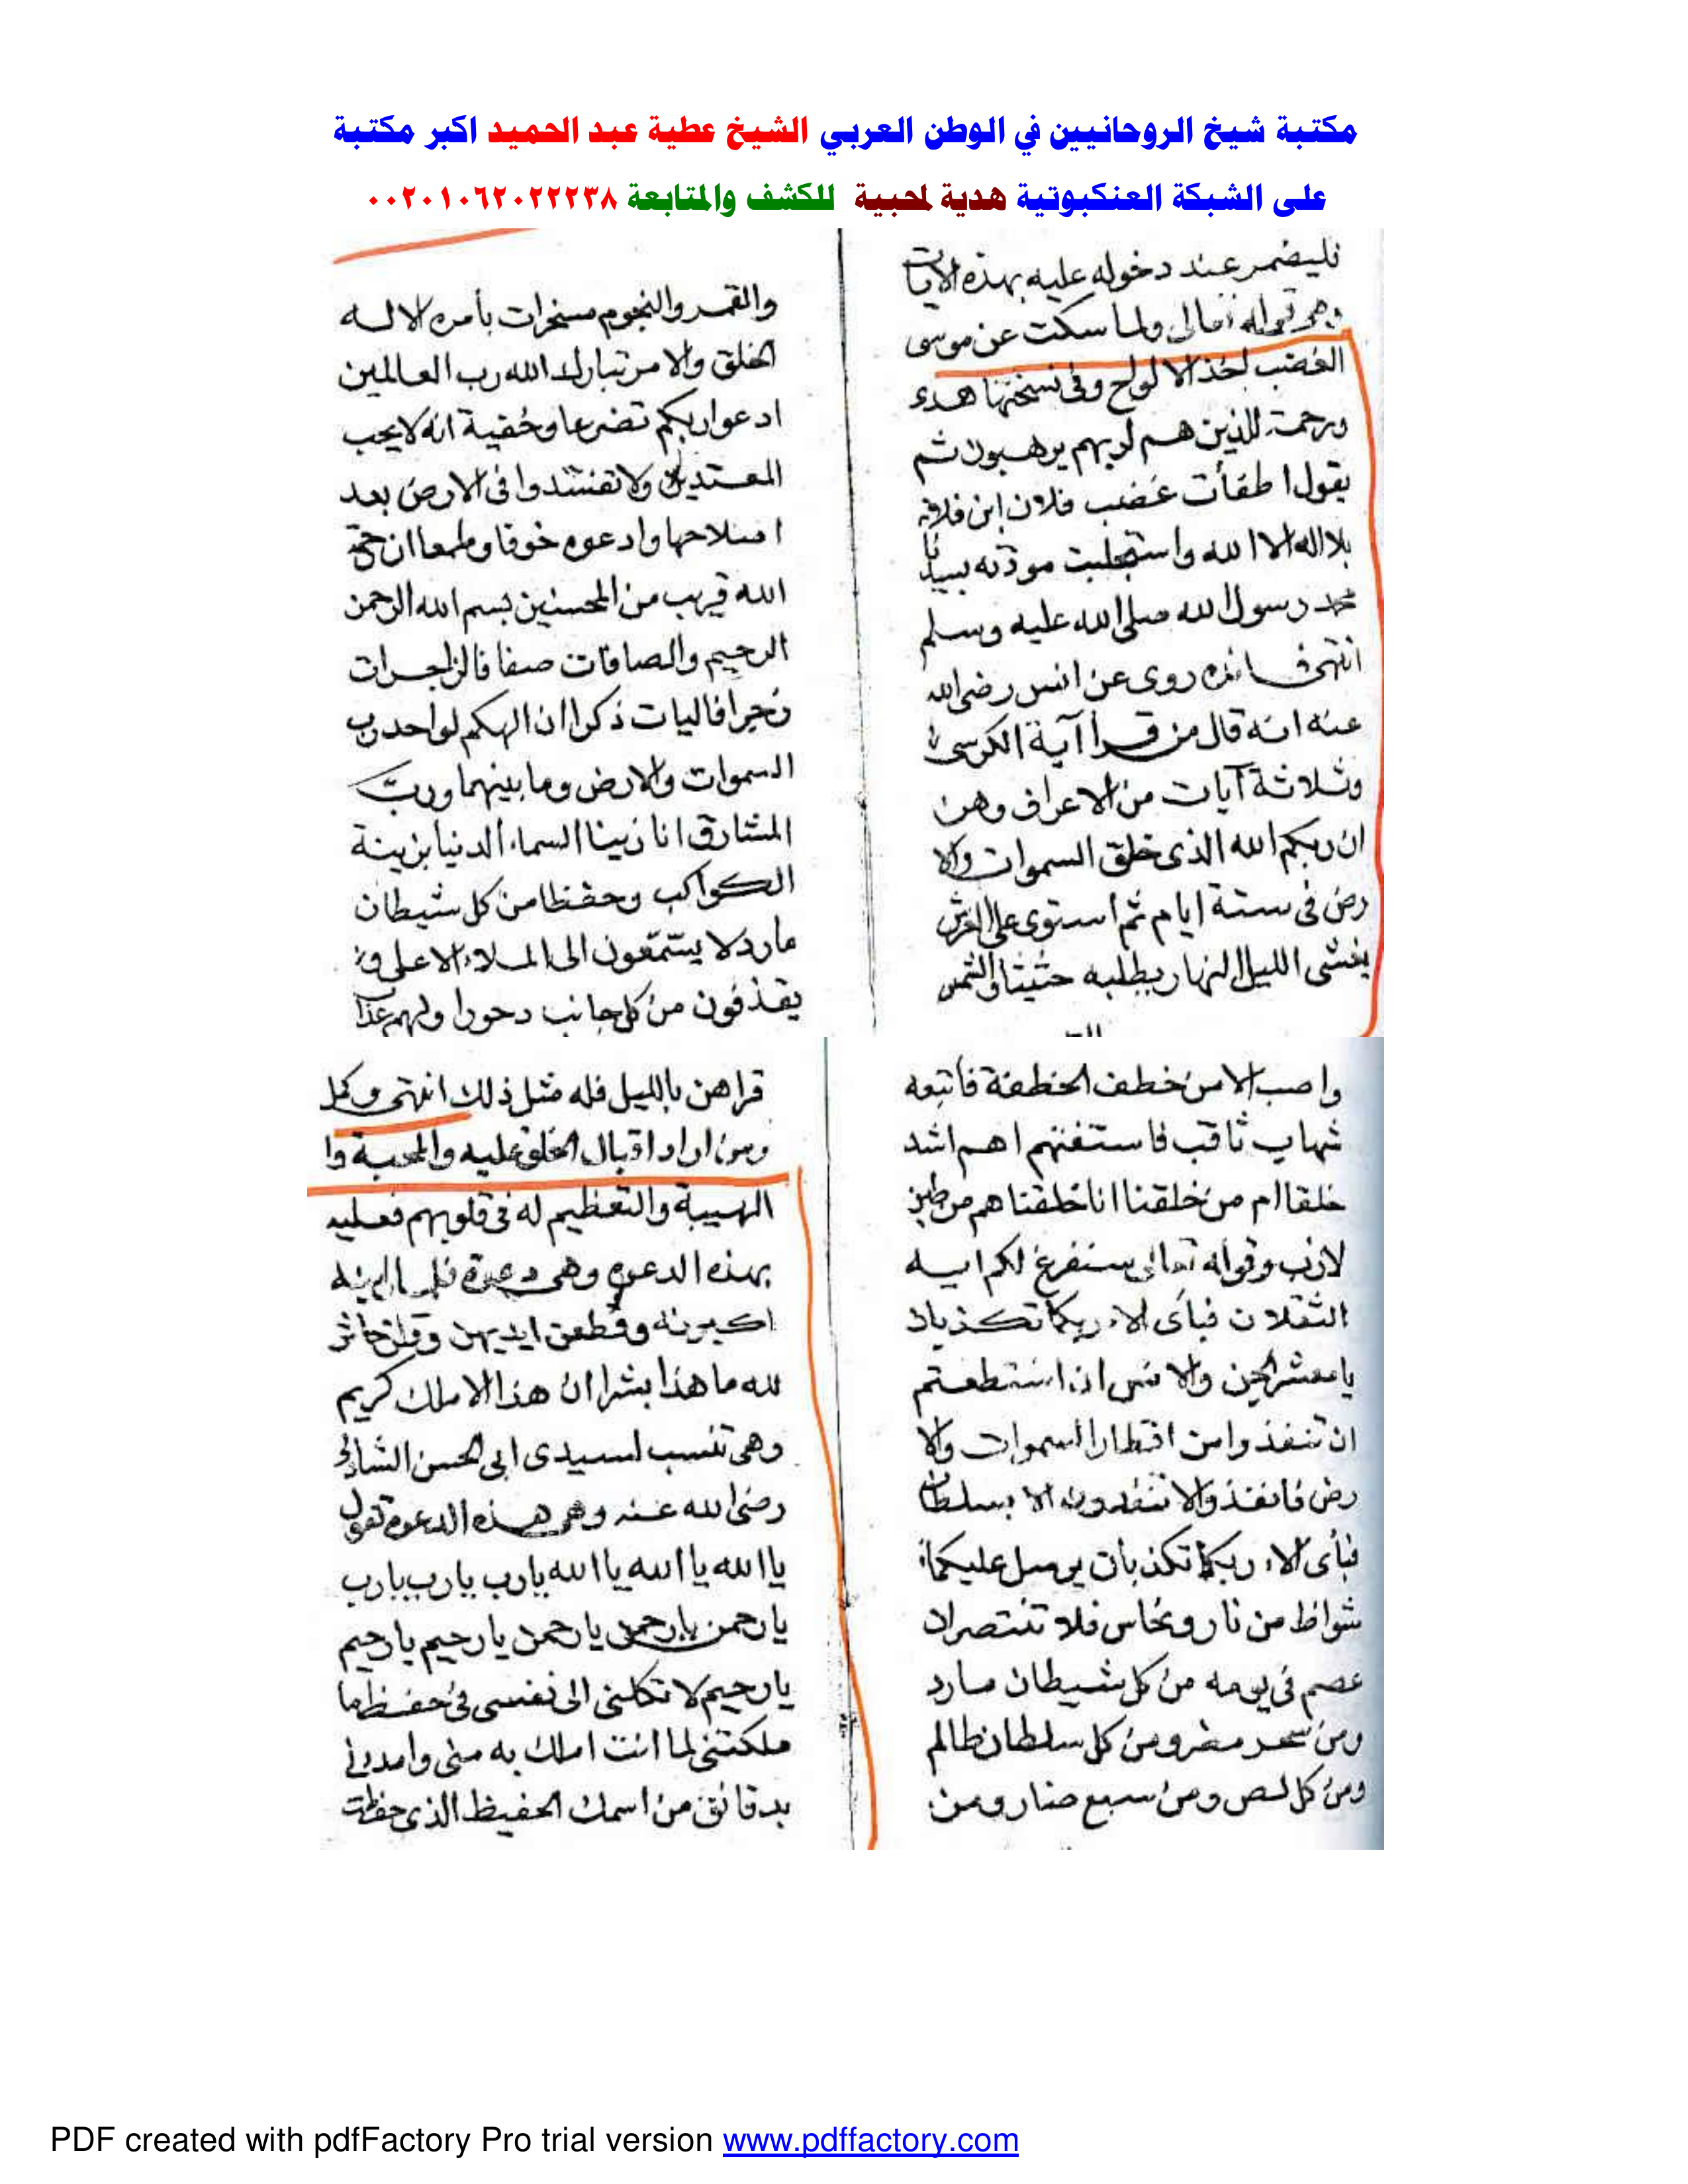 مكتبة شيخ الروحانيين في الوطن العربي الشيخ عطية عبد الحميد اكبر مكتبة
على الشبكة العنكبوتية هدية لمحبية للكشف والمتابعة ٠٠٢٠١٠٦٢٠٢٢٢٣٨
فليضمر عند دخوله عليه بهذه الايات
وهي قوله تعالى ولما سكت عن موسى
الغضب اخذ الالواح وفي نسختها هدى
ورحمة للذين هم لربهم يرهبون ثم
يقول اطفأت غضب فلان ابن فلانه
بلا اله الا الله واستجلبت مودته بسيدنا
محمد رسول الله صلى الله عليه وسلم
انتهى فائده روى عن انس رضى الله
عنه انه قال من قرأ آية الكرسى
وثلاثة آيات من الاعراف وهن
ان ربكم الله الذى خلق السموات والا
رض فى ستة ايام ثم استوى على العرش
يغشى الليل النهار يطلبه حثيثا والشمس
والقمر والنجوم مسخرات بأمره الا له
الخلق والامر تبارك الله رب العالمين
ادعوا ربكم تضرعا وخفية انه لا يحب
المعتدين ولا تفسدوا فى الارض بعد
اصلاحها وادعوه خوفا وطمعا ان رحمة
الله قريب من المحسنين بسم الله الرحمن
الرحيم والصافات صفا فالزاجرات
زجرا فاليات ذكرا ان الهكم لواحد رب
السموات والارض وما بينهما ورب
المشارق انا زينا السماء الدنيا بزينة
الكواكب وحفظا من كل شيطان
مارد لا يستمعون الى الملاء الاعلى و
يقذفون من كل جانب دحورا ولهم عذا
واصب الا من خطف الخطفة فاتبعه
شهاب ثاقب فاستفتهم اهم اشد
خلقا ام من خلقنا انا خلقناهم من طين
لازب وقوله تعالى سنفرغ لكم ايه
الثقلان فبأى الاء ربكما تكذبان
يا معشر الجن والانس ان استطعتم
ان تنفذوا من اقطار السموات والا
رض فانفذوا لا تنفذون الا بسلطان
فبأى الاء ربكما تكذبان يرسل عليكما
شواظ من نار ونحاس فلا تنتصران
عصم فى يومه من كل شيطان مارد
ومن سحر مضر ومن كل سلطان ظالم
ومن كل لص ومن سبع ضار ومن
قراهن بالليل فله مثل ذلك انتهى وكمل
ومن اراد اقبال الخلق عليه والمحبة وا
الهيبة والتعظيم له فى قلوبهم فعليه
بهذه الدعوه وهى دعوة فلما راينه
اكبرنه وقطعن ايديهن وقلن حاش
لله ما هذا بشرا ان هذا الا ملك كريم
وهى تنسب لسيدى ابى الحسن الشاذلى
رضى الله عنه وهى هذه الدعوة تقول
يا الله يا الله يا الله يارب يارب يارب
يارحمن يارحمن يارحمن يارحيم يارحيم
يارحيم لا تكلنى الى نفسى فى حفظ ما
ملكتنى لما انت املك به منى وامدنى
بدقائق من اسمك الحفيظ الذى حفظت
PDF created with pdfFactory Pro trial version www.pdffactory.com